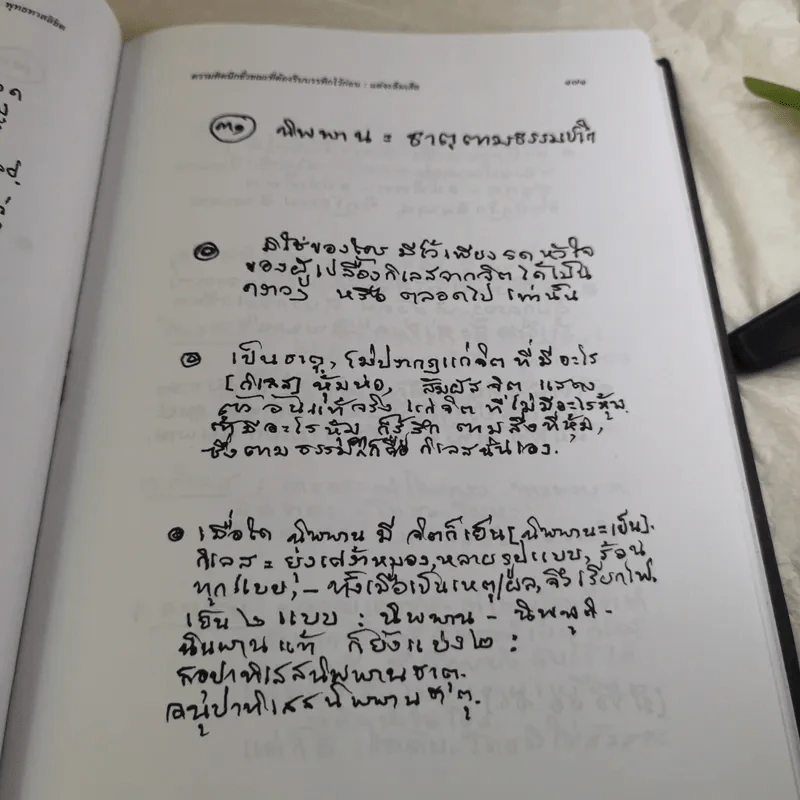 พุทธทาสลิขิต
ความคิดนึกชั่วขณะที่ต้องรีบบรรทึกไว้ก่อน : แต่จะลืมเสีย
๓๐ นิพพาน = ธาตุตามธรรมชาติ
มิใช่ของใคร มีไว้เพียง รด หัวใจ
ของผู้เปลื้องกิเลสจากจิตได้เป็น
หรือ ตลอดไป เท่านั้น
เป็นธาตุ, ไม่ปรากฏแก่จิตที่มีอะไร
[กิเลส] หุ้มห่อ, สัมผัสจิต แสดง
ตัวอันแท้จริง แก่จิตที่ไม่มีอะไรหุ้ม.
ถ้ามีอะไรหุ้ม ก็รู้สึก ตามสิ่งที่หุ้ม,
ซึ่งตามธรรมดาก็คือ กิเลสนั่นเอง.
เมื่อใด นิพพานมี จิตก็เย็น [นิพพาน=เย็น].
กิเลส = ยุ่งเศร้าหมอง, หลายรูปแบบ, ร้อน
ทุกแบบ, – ทั้งเมื่อเป็นเหตุ/ผล, จึงเรียกไฟ.
เย็น ๒ แบบ : นิพพาน – นิพพุติ.
นิพพานแท้ ก็ยังแบ่ง ๒ :
สอุปาทิเสสนิพพานธาตุ.
อนุปาทิเสสนิพพานธาตุ.